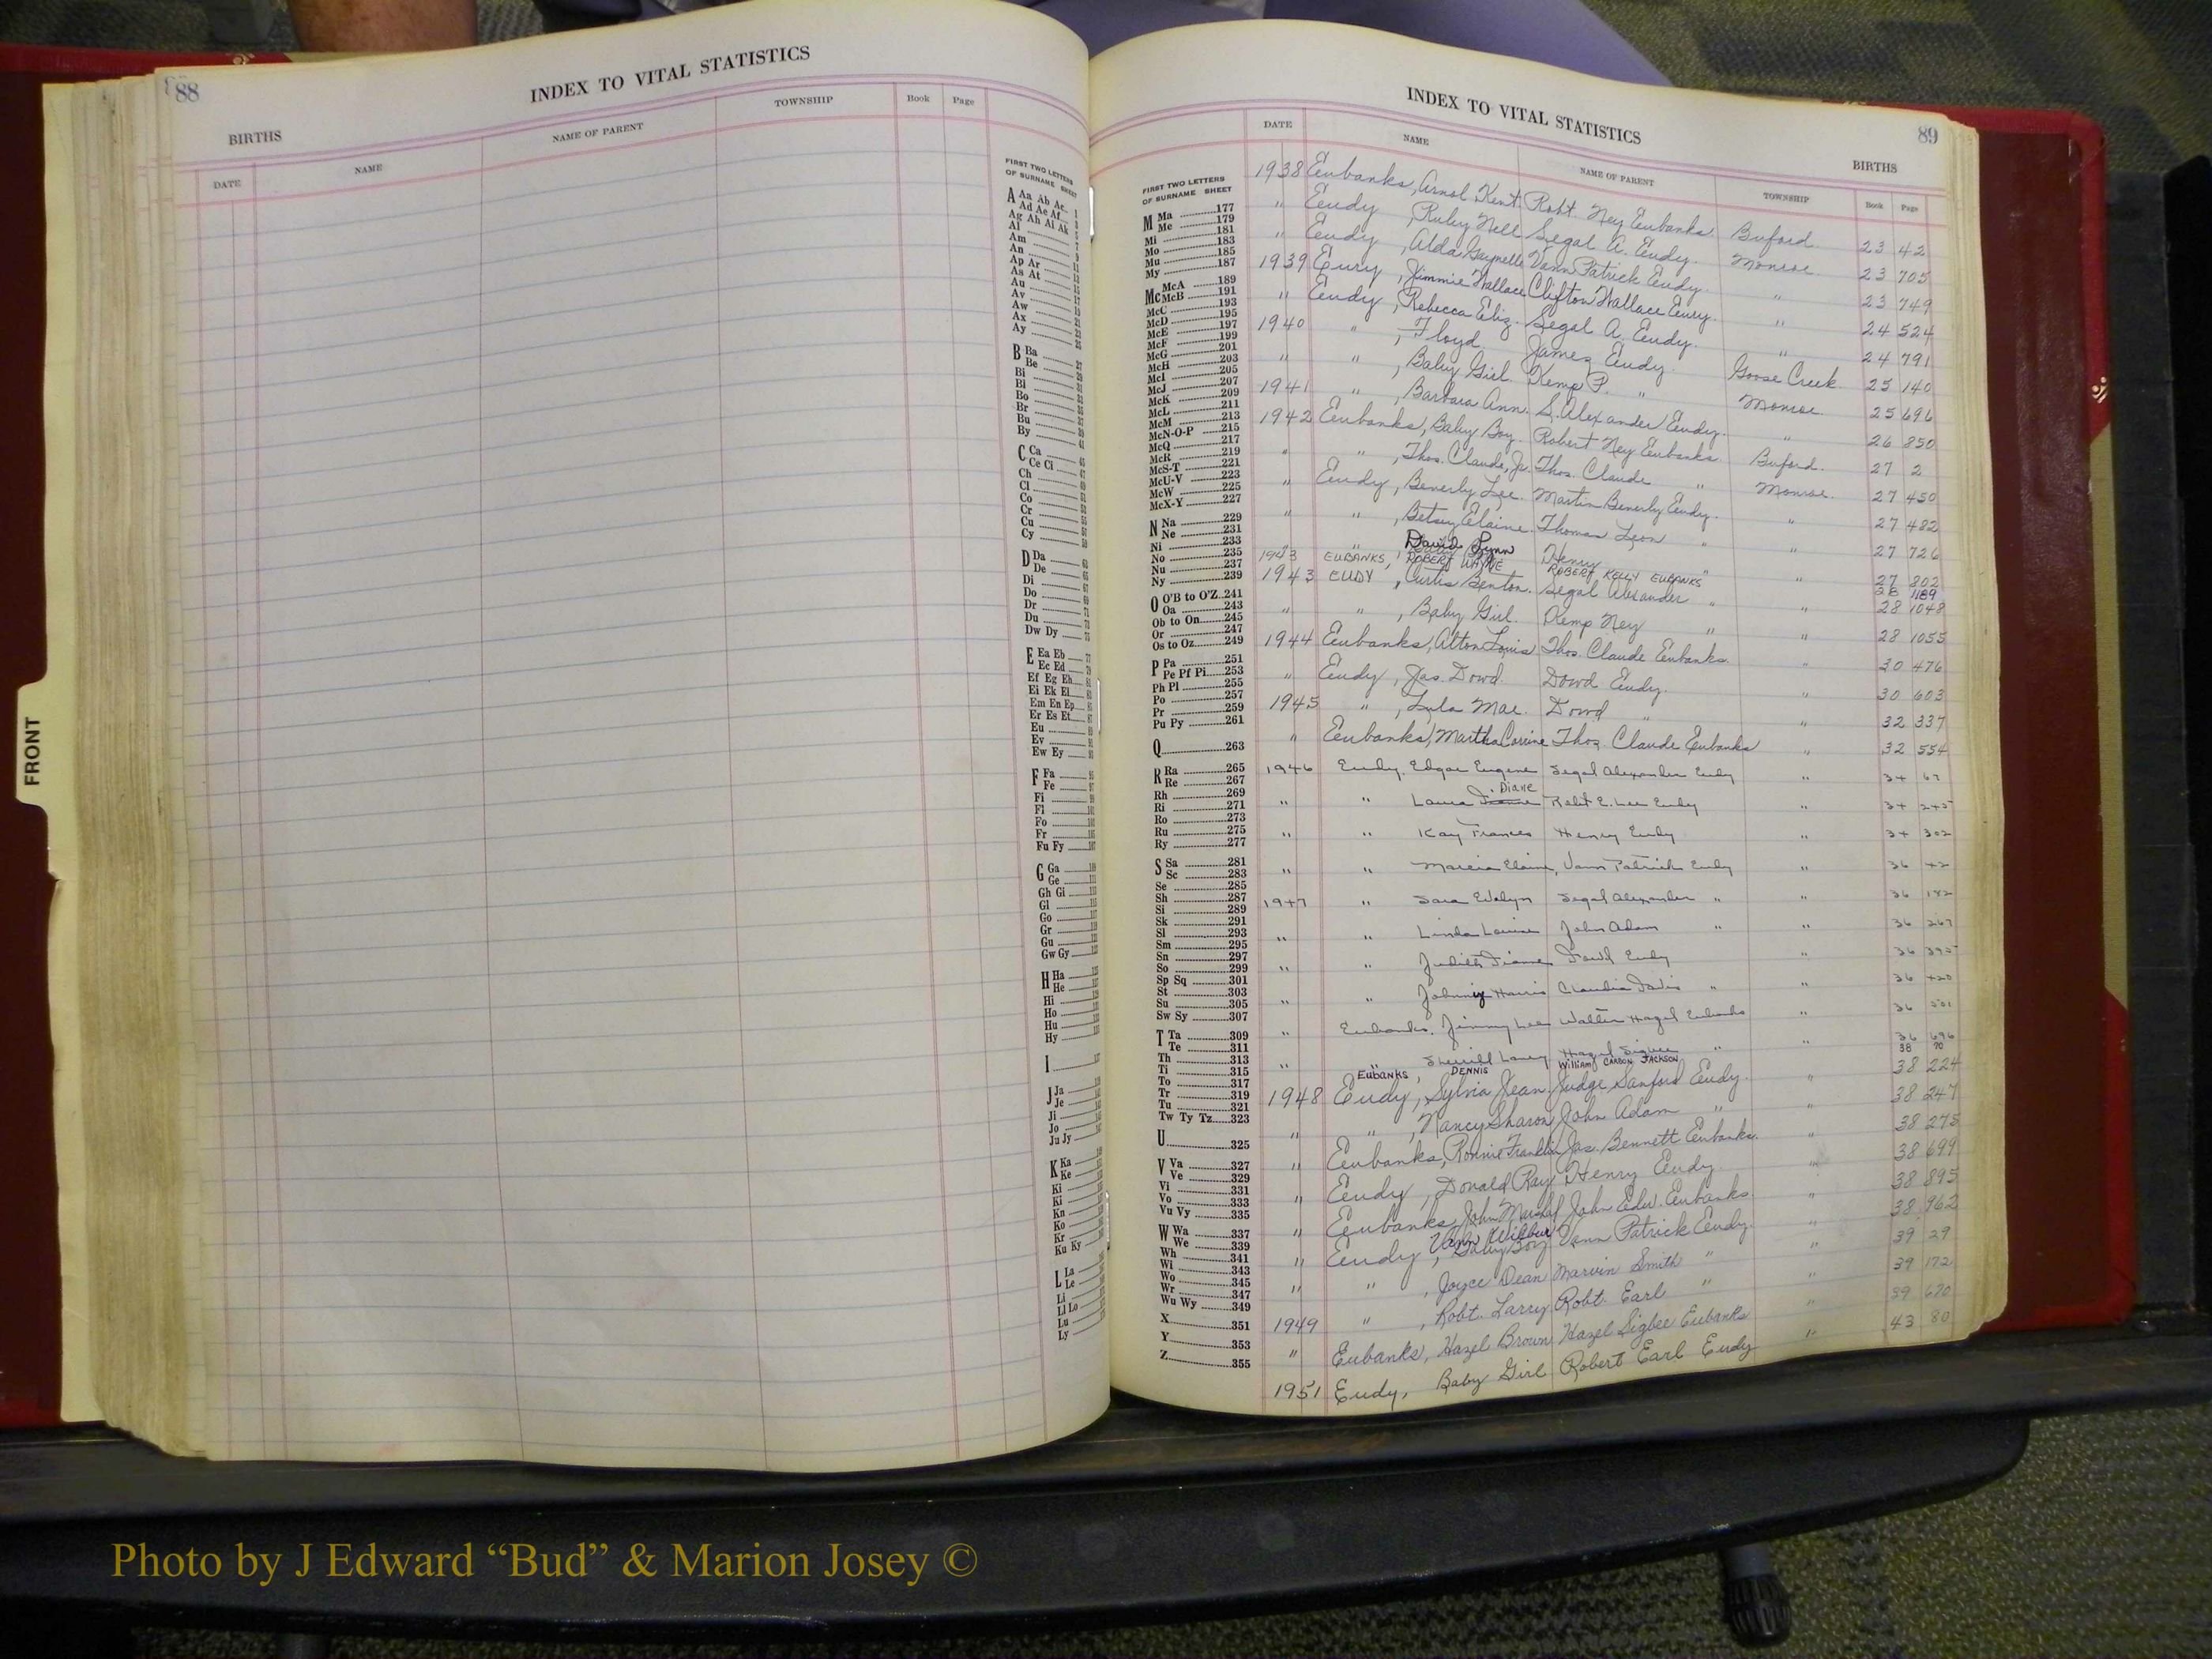 88
INDEX TO VITAL STATISTICS
BIRTHS
DATE NAME NAME OF PARENT TOWNSHIP Book Page
FIRST TWO LETTERS
OF SURNAME SHEET
A Aa Ab Ac
Ad Ae Af
Ag Ah Ai Ak
Al
Am
An
Ap Ar
As At
Au
Av
Aw
Ax
Ay
B Ba
Be
Bi
Bl
Bo
Br
Bu
By
C Ca
Ce Ci
Ch
Cl
Co
Cr
Cu
Cy
D Da
De
Di
Do
Dr
Du
Dw Dy
E Ea Eb
Ec Ed
Ef Eg Eh
Ei Ek El
Em En Ep
Er Es Et
Eu
Ev
Ew Ey
F Fa
Fe
Fi
Fl
Fo
Fr
Fu Fy
G Ga
Ge
Gh Gi
Gl
Go
Gr
Gu
Gw Gy
H Ha
He
Hi
Ho
Hu
Hy
I
J Ja
Je
Ji
Jo
Ju Jy
K Ka
Ke
Ki
Kl
Kn
Ko
Kr
Ku Ky
L La
Le
Li
Ll Lo
Lu
Ly
FRONT
INDEX TO VITAL STATISTICS
89
BIRTHS
DATE NAME NAME OF PARENT TOWNSHIP Book Page
FIRST TWO LETTERS
OF SURNAME SHEET
M Ma 177
Me 179
Mi 181
Mo 183
Mu 185
My 187
Mc McA 189
McB 191
McC 193
McD 195
McE 197
McF 199
McG 201
McH 203
McI 205
McJ 207
McK 209
McL 211
McM 213
McN-O-P 215
McQ 217
McR 219
McS-T 221
McU-V 223
McW 225
McX-Y 227
N Na 229
Ne 231
Ni 233
No 235
Nu 237
Ny 239
O O'B to O'Z 241
Oa 243
Ob to On 245
Or 247
Os to Oz 249
P Pa 251
Pe Pf Pi 253
Ph Pl 255
Po 257
Pr 259
Pu Py 261
Q 263
R Ra 265
Re 267
Rh 269
Ri 271
Ro 273
Ru 275
Ry 277
S Sa 281
Sc 283
Se 285
Sh 287
Si 289
Sk 291
Sl 293
Sm 295
Sn 297
So 299
Sp Sq 301
St 303
Su 305
Sw Sy 307
T Ta 309
Te 311
Th 313
Ti 315
To 317
Tr 319
Tu 321
Tw Ty Tz 323
U 325
V Va 327
Ve 329
Vi 331
Vo 333
Vu Vy 335
W Wa 337
We 339
Wh 341
Wi 343
Wo 345
Wr 347
Wu Wy 349
X 351
Y 353
Z 355
1938 Eubanks, Arnol Kent Robt. Ney Eubanks Buford 23 42
" Eudy, Ruby Nell Segal A. Eudy. Monroe 23 705
" Eudy, Alda Gaynelle Vann Patrick Eudy. " 23 749
1939 Eury, Jimmie Wallace Clifton Wallace Eury. " 24 524
" Eudy, Rebecca Eliz. Segal A. Eudy. " 24 791
1940 " , Floyd James Eudy. Goose Creek 25 140
" " , Baby Girl. Kemp P. " Monroe 25 696
1941 " , Barbara Ann. S. Alexander Eudy. " 26 850
1942 Eubanks, Baby Boy. Robert Ney Eubanks Buford. 27 2
" " , Thos. Claude, Jr. Thos. Claude " Monroe. 27 450
" Eudy, Beverly Lee. Martin Beverly Eudy. " 27 482
" " , Betsy Elaine. Thomas Leon " " 27 726
" " David Lynn Henry " " 27 802
1943 EUBANKS, ROBERT WAYNE ROBERT KELLY EUBANKS 28 1189
1943 EUDY, Curtis Benton. Segal Alexander " " 28 1048
" " , Baby Girl. Kemp Ney " " 28 1055
1944 Eubanks, Alton Louis Thos. Claude Eubanks. " 30 476
" Eudy, Jas. Dowd. Dowd Eudy. " 30 603
1945 " , Lyla Mae. Dowd " " 32 337
" Eubanks, Martha Corrine Thos. Claude Eubanks " 32 554
1946 Eudy, Edgar Eugene Segal Alexander Eudy " 34 67
" " Laura Diane Robt E. Lee Eudy " 34 245
" " Kay Frances Henry Eudy " 34 302
" " Marcia Elaine, Vann Patrick Eudy " 36 42
1947 " Sara Evelyn Segal Alexander " " 36 182
" " Linda Louise John Adam " " 36 267
" " Judith Dianne Dowd Eudy " 36 395
" " Johnny Harris Claudia Davis " " 36 420
" Eubanks, Jimmy Lee Walter Hazel Eubanks " 36 501
" Sherrill Laney Hazel Sigbee " " 36 696
EUBANKS, DENNIS William CARSON JACKSON 38 70
1948 Eudy, Sylvia Jean Judge Sanford Eudy. " 38 224
" " , Nancy Sharon John Adam " " 38 247
" Eubanks, Ronnie Franklin Jas. Bennett Eubanks. " 38 275
" Eudy, Donald Ray Henry Eudy. " 38 699
" Eubanks, John Marshal John Edw. Eubanks " 38 895
" Eudy, Vann Wilbur Baby Boy Vann Patrick Eudy. " 38 962
" " , Joyce Dean Marvin Smith " " 39 29
1949 " , Robt. Larry Robt. Earl " " 39 172
" Eubanks, Hazel Brown Hazel Sigbee Eubanks " 39 670
1951 Eudy, Baby Girl Robert Earl Eudy " 43 80
Photo by J Edward “Bud” & Marion Josey ©